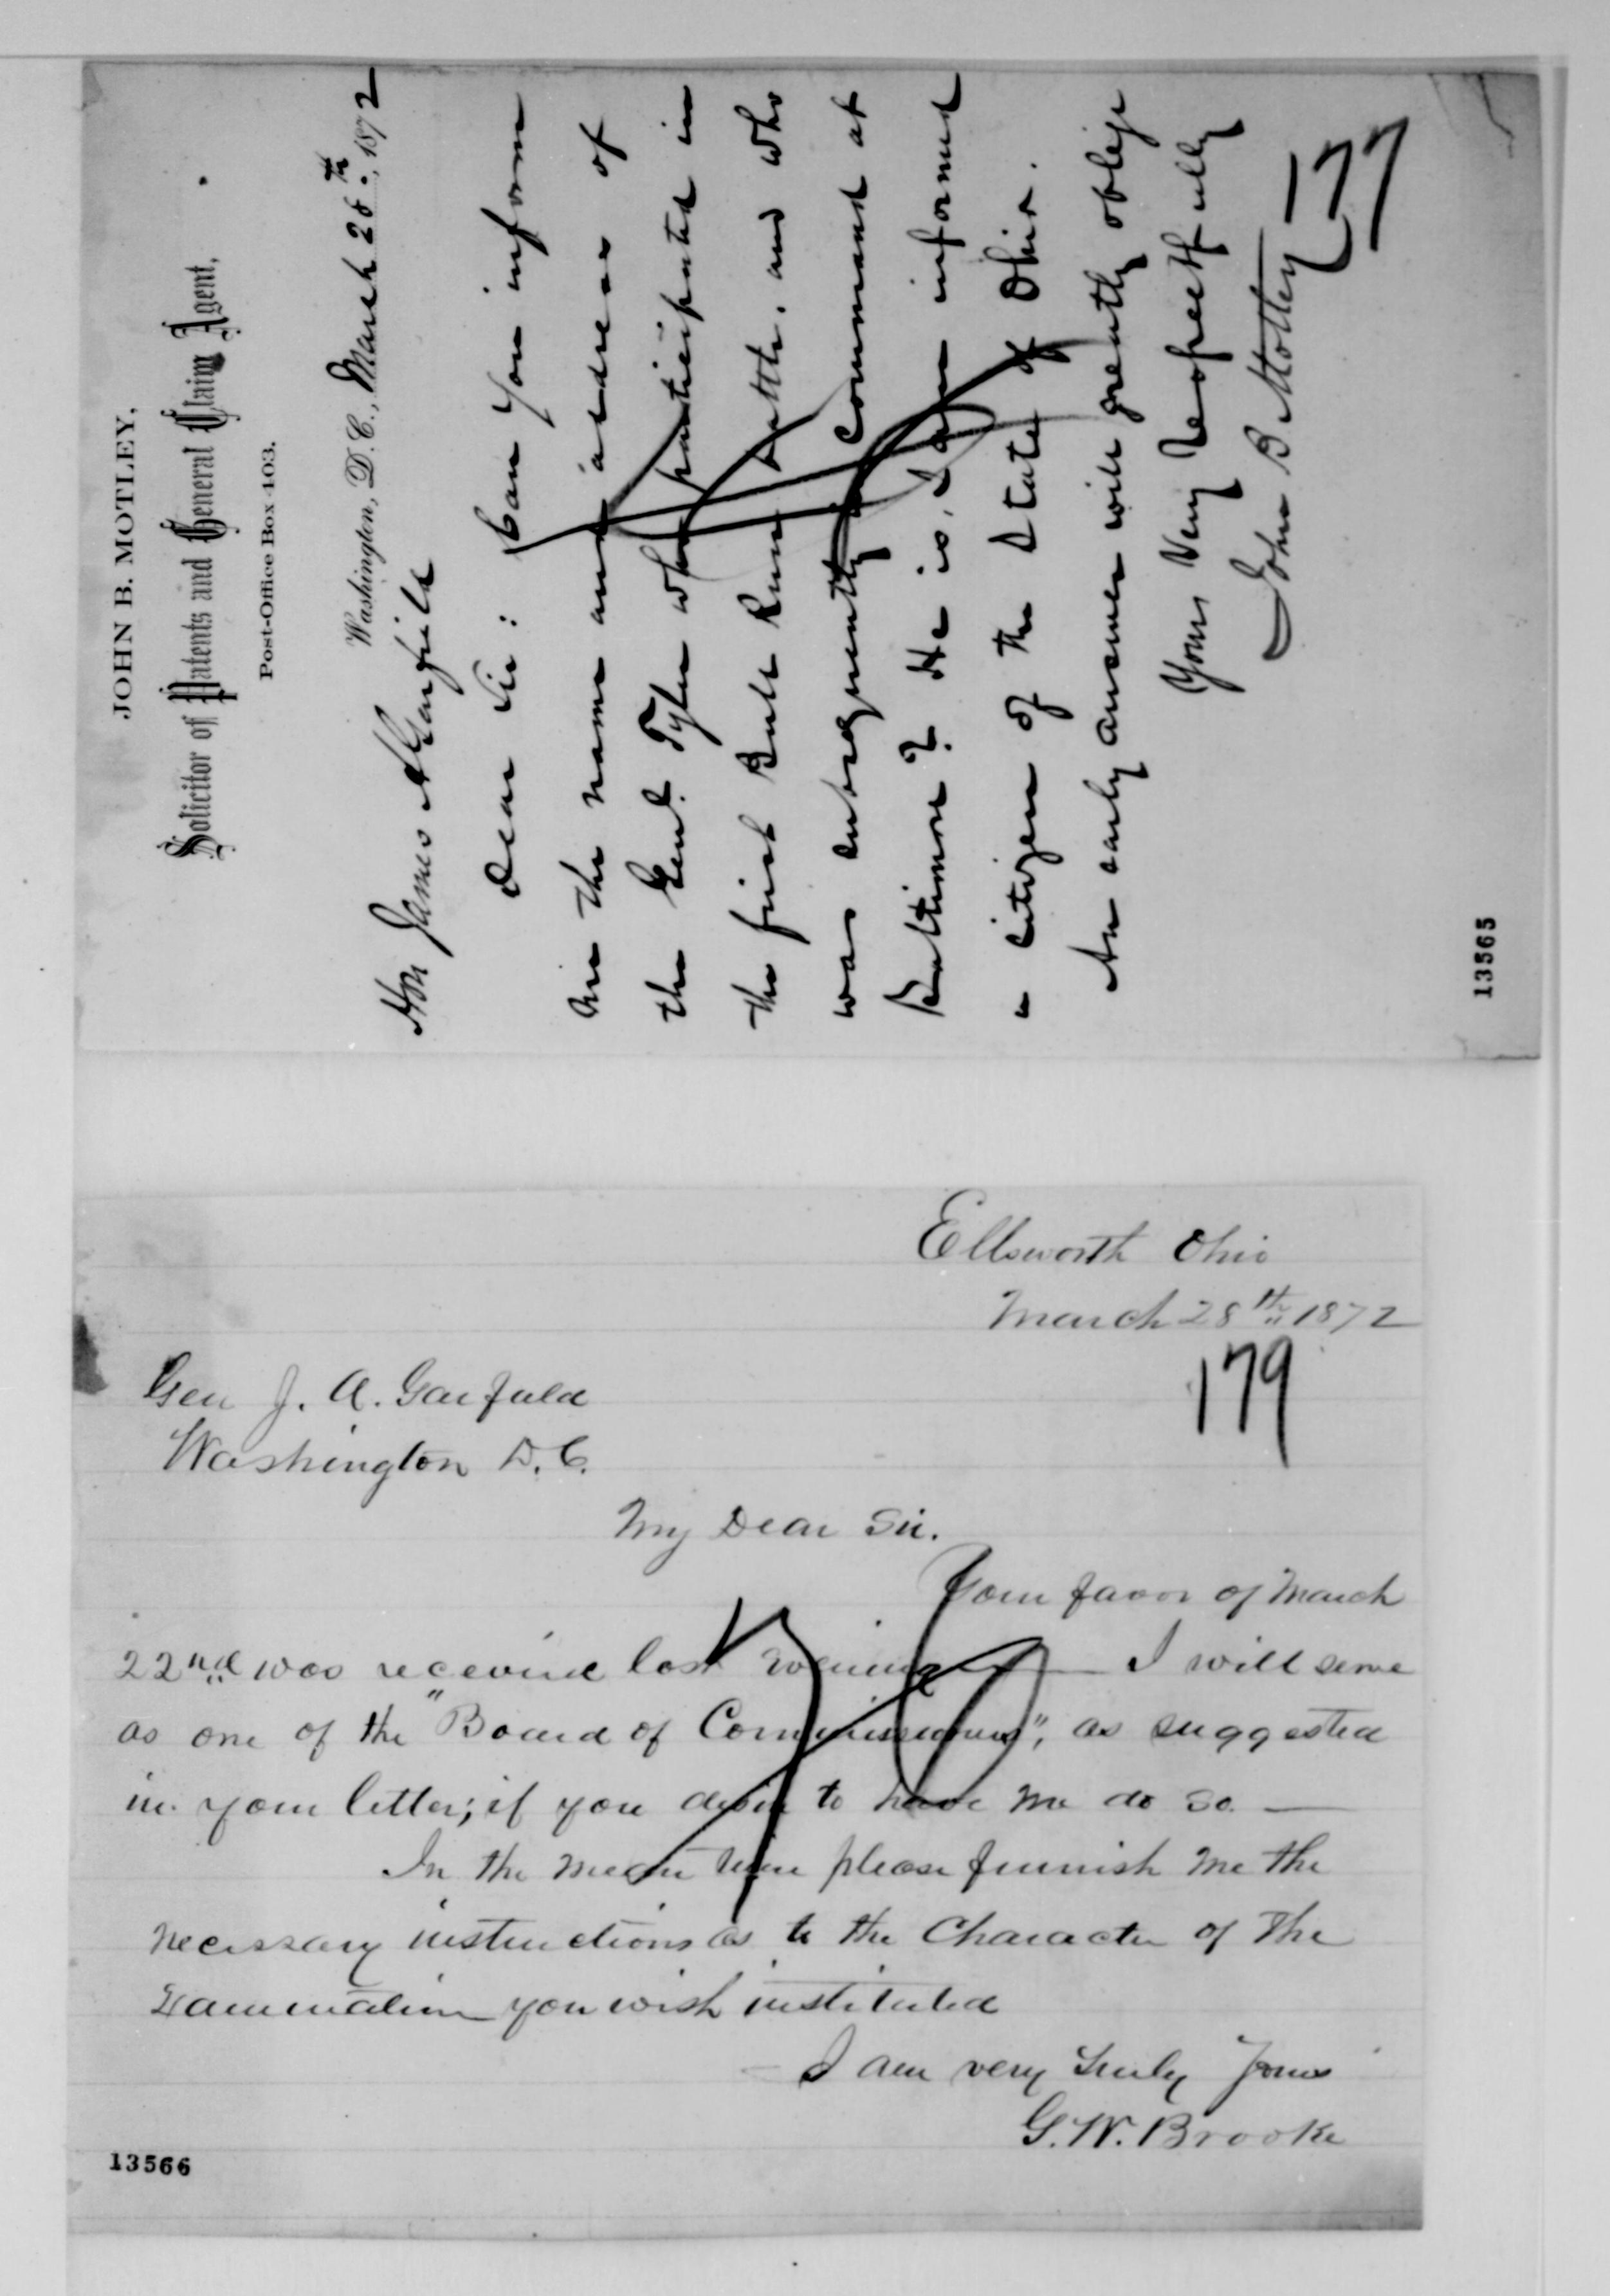 JOHN B. MOTLEY,
Solicitor of Patents and General Claim Agent,
Post-Office Box 403.
Washington, D. C., March 28th, 1872
Hon James A Garfield
Dear Sir: Can you inform
me the name and address of
the Genl. Tyler who participated in
the first Bull Run battle, and who
was subsequently in command at
Baltimore? He is, I am informed
a citizen of the State of Ohio.
An early answer will greatly oblige
Yours Very Respectfully
John B Motley
177
13565
Ellsworth Ohio
March 28th 1872
179
Gen J. A. Garfield
Washington D. C.
My Dear Sir.
Your favor of March
22nd was received last evening — I will serve
as one of the "Board of Commissioners", as suggested
in your letter; if you desire to have me do so. —
In the mean time please furnish me the
necessary instructions as to the Character of the
Examination you wish instituted
I am very truly Yours
G. W. Brooke
13566